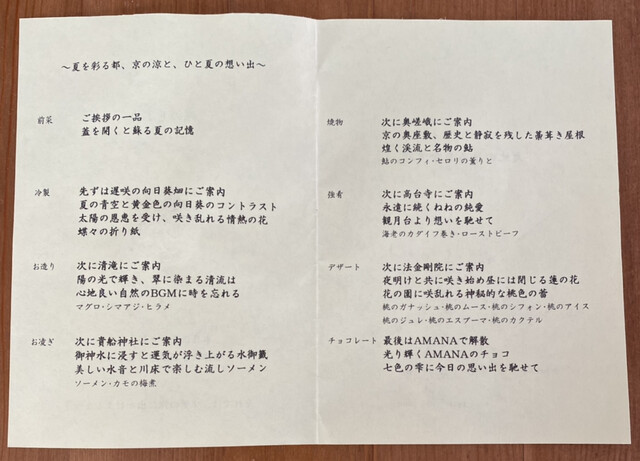 ～夏を彩る都、京の涼と、ひと夏の想い出～
前菜
ご挨拶の一品
蓋を開くと蘇る夏の記憶
冷製
先ずは遅咲の向日葵畑にご案内
夏の青空と黄金色の向日葵のコントラスト
太陽の恩恵を受け、咲き乱れる情熱の花
蝶々の折り紙
お造り
次に清滝にご案内
陽の光で輝き、翠に染まる清流は
心地良い自然のBGMに時を忘れる
マグロ・シマアジ・ヒラメ
お凌ぎ
次に貴船神社にご案内
御神水に浸すと運気が浮き上がる水御籤
美しい水音と川床で楽しむ流しソーメン
ソーメン・カモの梅煮
焼物
次に奥嵯峨にご案内
京の奥座敷、歴史と静寂を残した藁葺き屋根
煌く渓流と名物の鮎
鮎のコンフィ・セロリの薫りと
強肴
次に高台寺にご案内
永遠に続くねねの純愛
観月台より想いを馳せて
海老のカダイフ巻き・ローストビーフ
デザート
次に法金剛院にご案内
夜明けと共に咲き始め昼には閉じる蓮の花
花の園に咲乱れる神秘的な桃色の蕾
桃のガナッシュ・桃のムース・桃のシフォン・桃のアイス
桃のジュレ・桃のエスプーマ・桃のカクテル
チョコレート
最後はAMANAで解散
光り輝くAMANAのチョコ
七色の雫に今日の思い出を馳せて